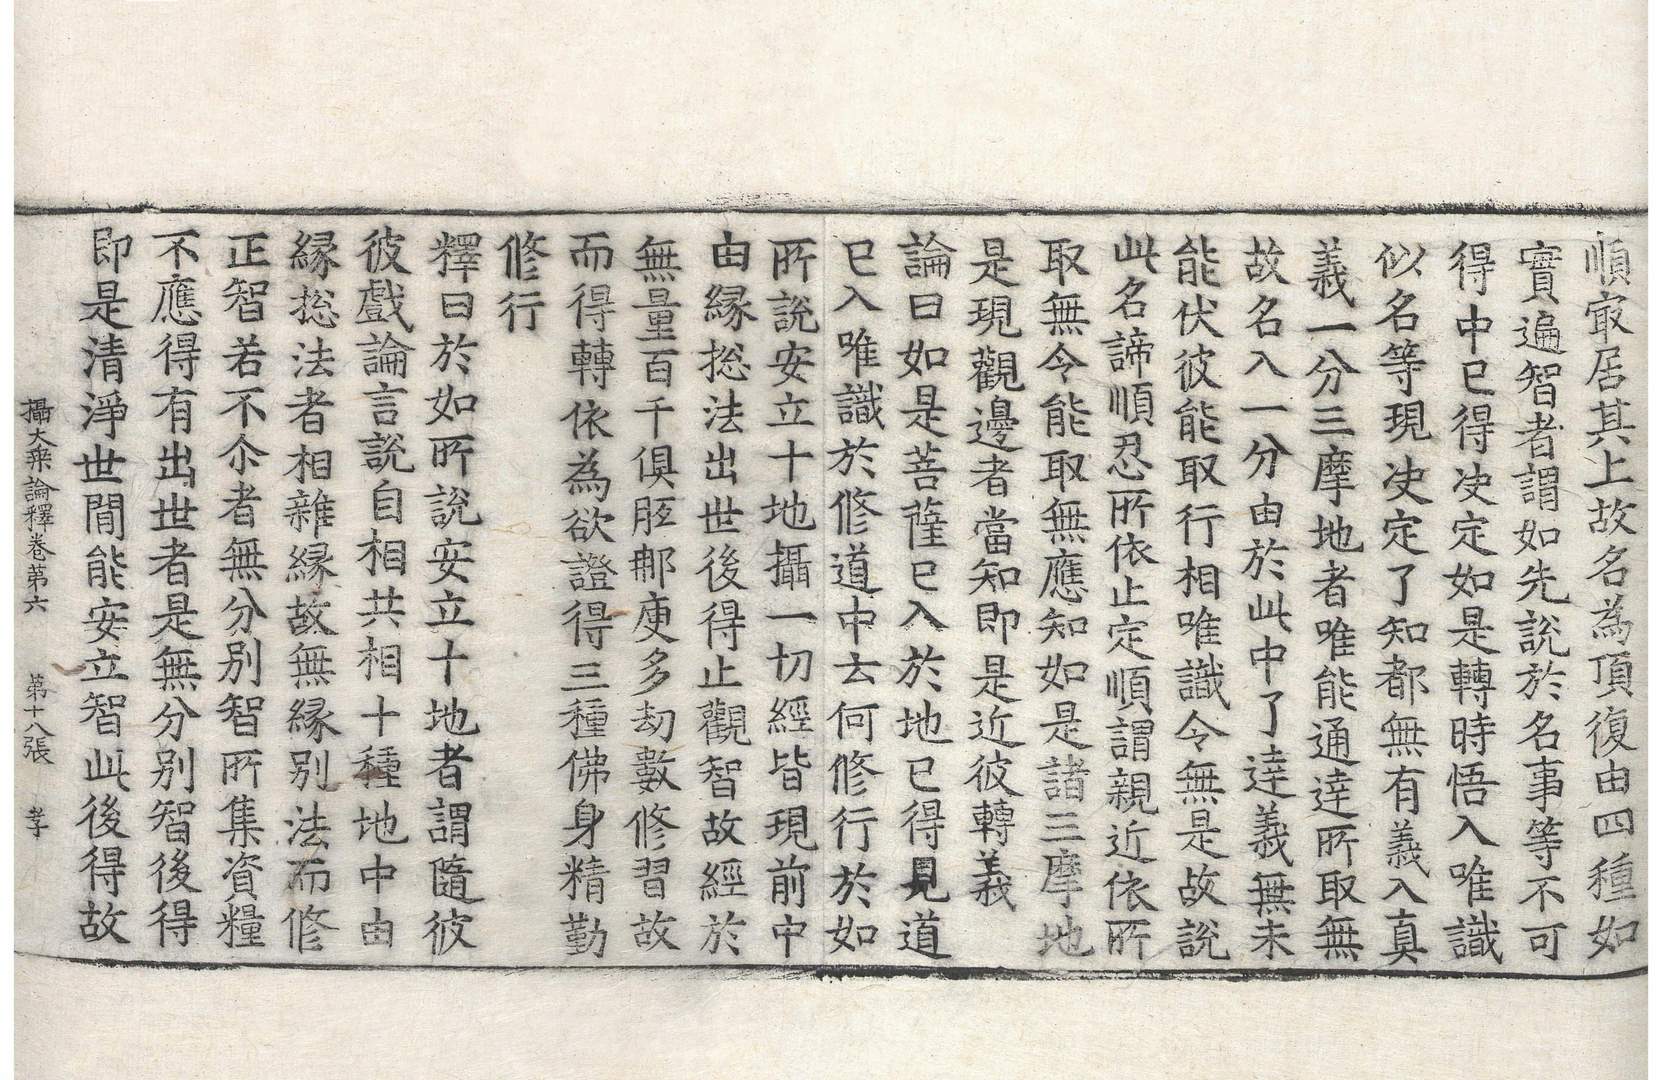 順冣居其上故名為頂復由四種如
實遍智者謂如先説於名事等不可
得中已得决定如是轉時悟入唯識
似名等現决定了知都無有義入真
義一分三摩地者唯能通達所取無
故名入一分由於此中了達義無未
能伏彼能取行相唯識令無是故説
此名諦順忍所依止定順謂親近依所
取無令能取無應知如是諸三摩地
是現觀邊者當知即是近彼轉義
論曰如是菩薩已入於地已得見道
已入唯識於修道中云何修行於如
所説安立十地攝一切經皆現前中
由緣捴法出世後得止觀智故經於
無量百千俱胝那庾多劫數修習故
而得轉依為欲證得三種佛身精勤
修行
釋曰於如所説安立十地者謂隨彼
彼戲論言説自相共相十種地中由
緣捴法者相雜緣故無緣別法而修
正智若不尒者無分別智所集資糧
不應得有出世者是無分別智後得
即是清淨世間能安立智此後得故
攝大乘論釋卷第六 第十八張 孝